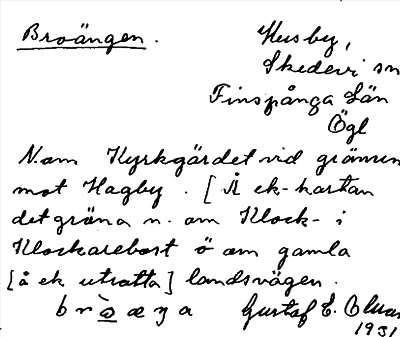 Broängen.
Husby,
Skedevi sn
Finspånga Län
Ögl
N. om Kyrkgärdet vid gränsen
mot Hagby. [Å ek-kartan
det gröna n. om Klock- i
Klockarebost ö om gamla
[å ek utsatta] landsvägen.
Gustaf E.
1931